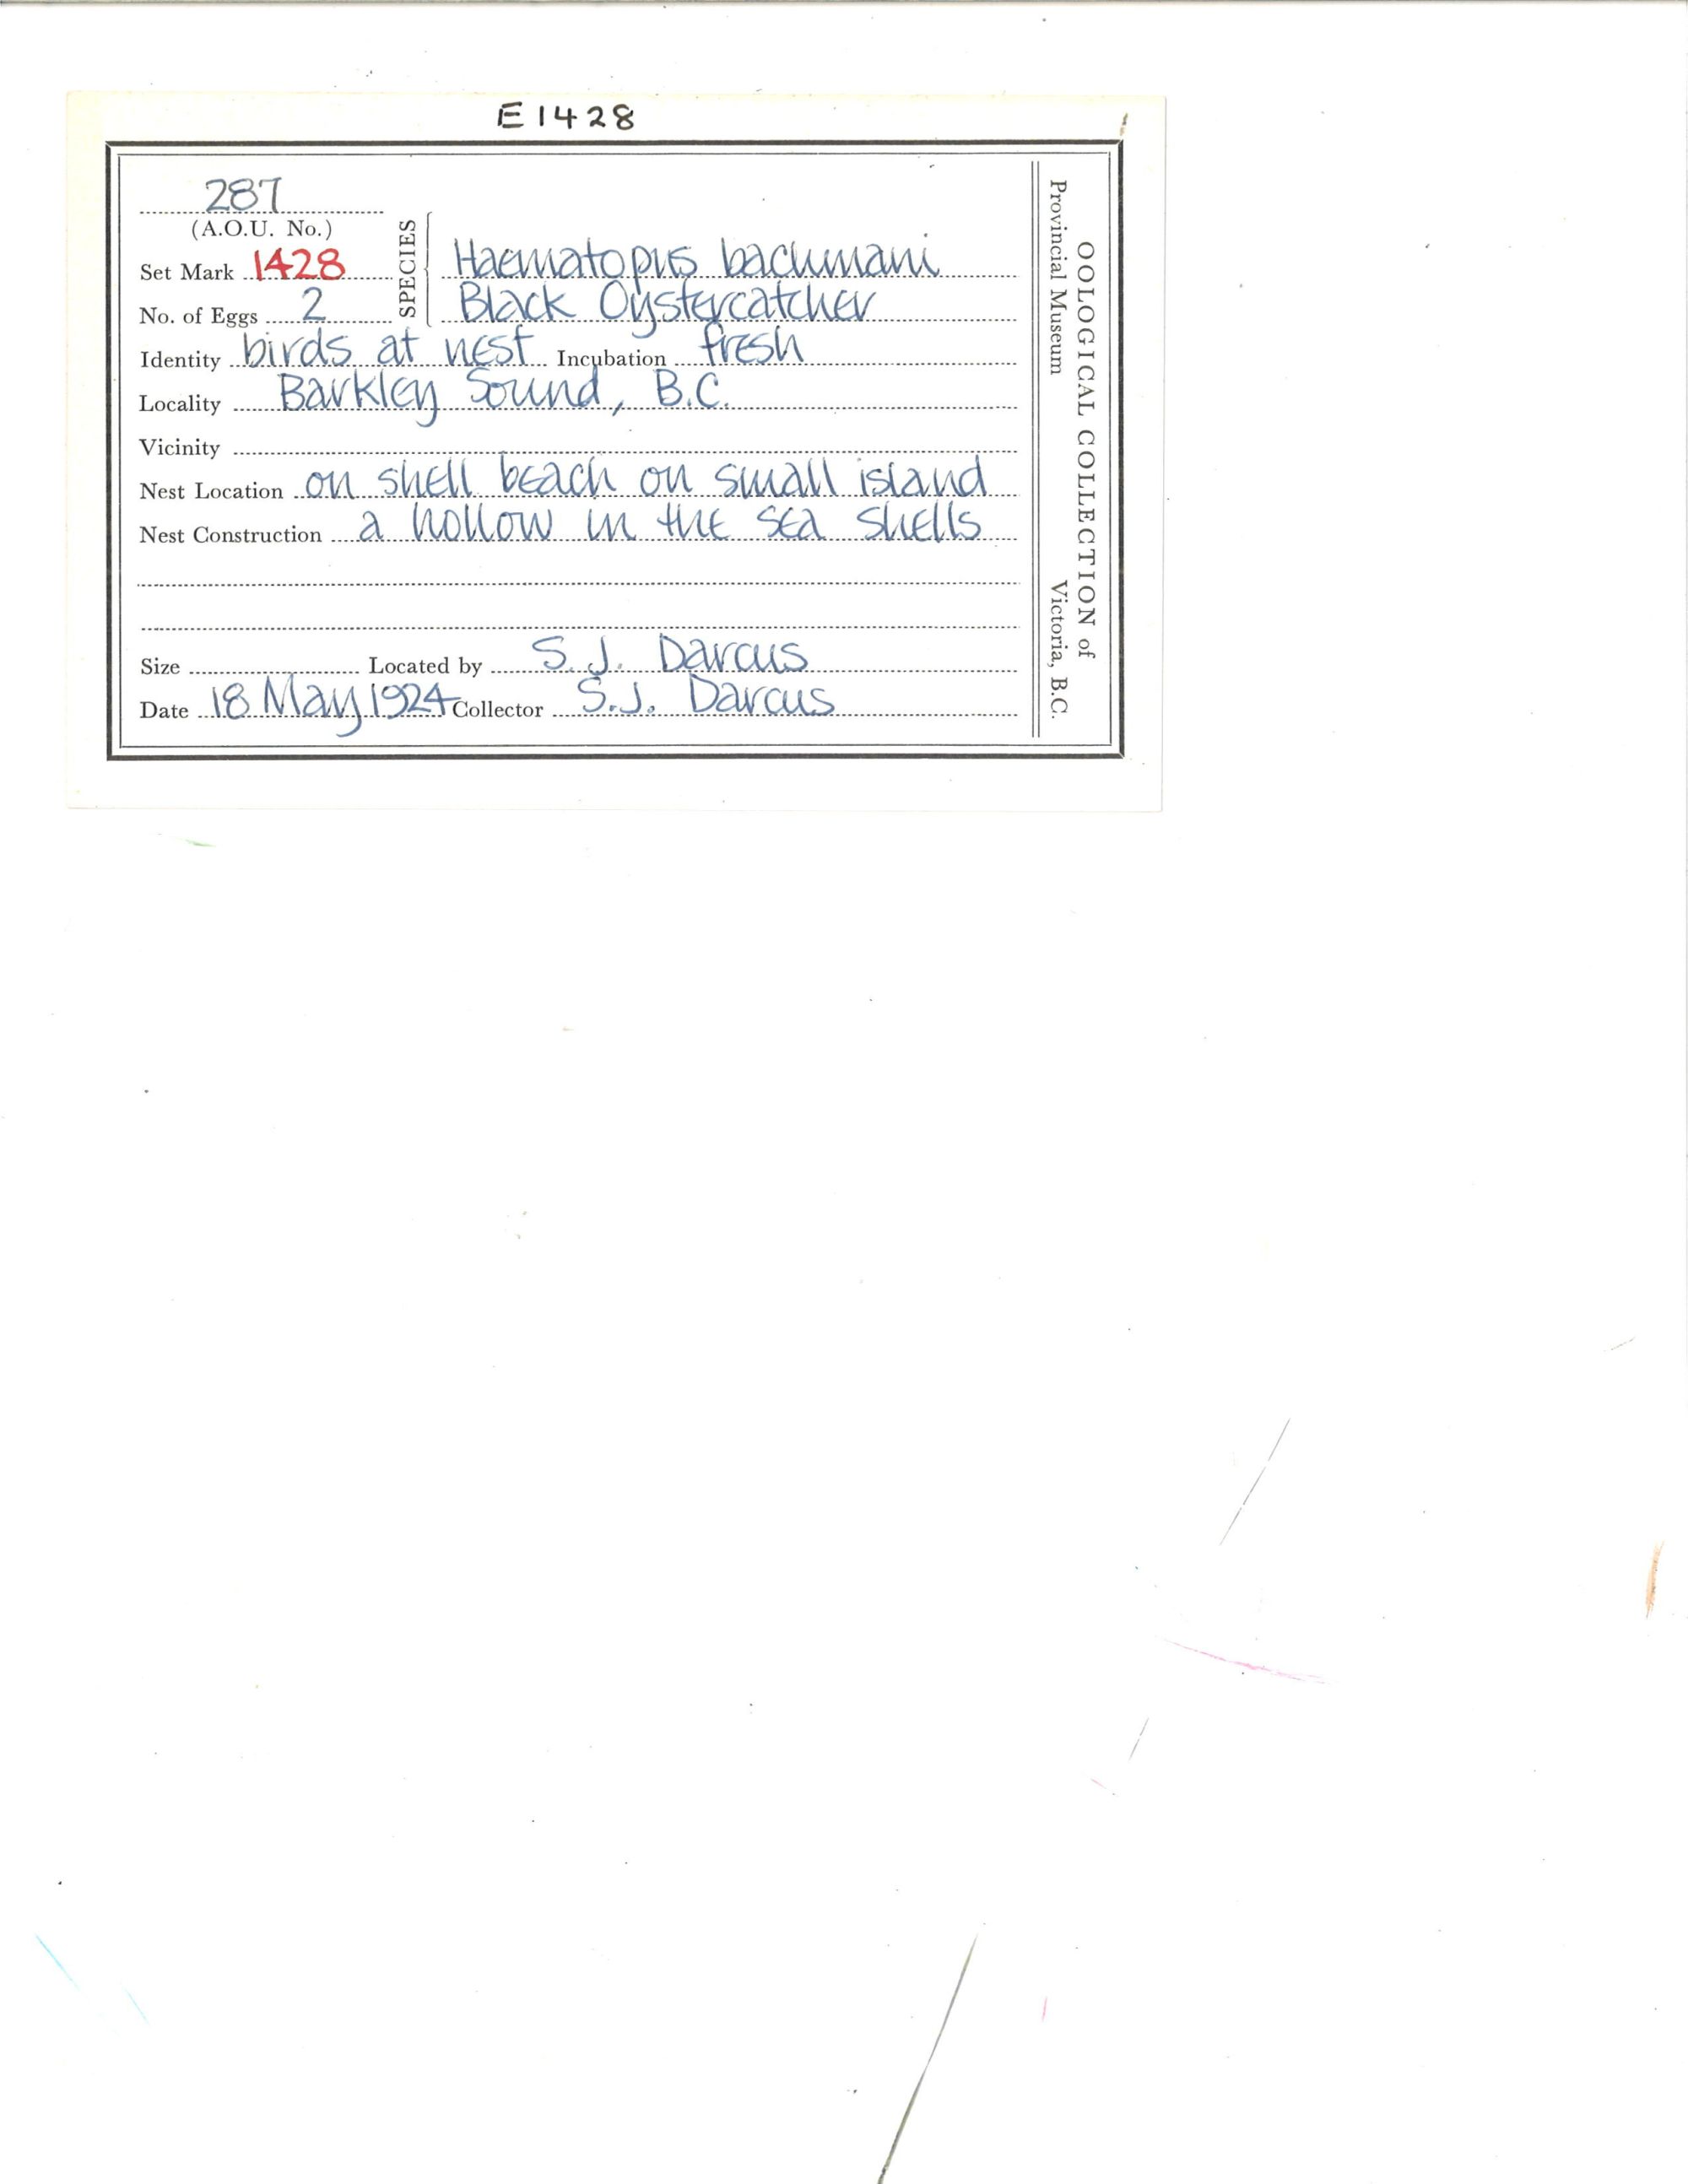 E1428
287
(A.O.U. No.)
SPECIES
Set Mark 1428 Haematopus bachmani
No. of Eggs 2 Black Oystercatcher
Identity birds at nest Incubation fresh
Locality Barkley Sound, B.C.
Vicinity
Nest Location on shell beach on small island
Nest Construction a hollow in the sea shells
Size Located by S.J. Darcus
Date 18 May 1924 Collector S.J. Darcus
OOLOGICAL COLLECTION of
Provincial Museum Victoria, B.C.